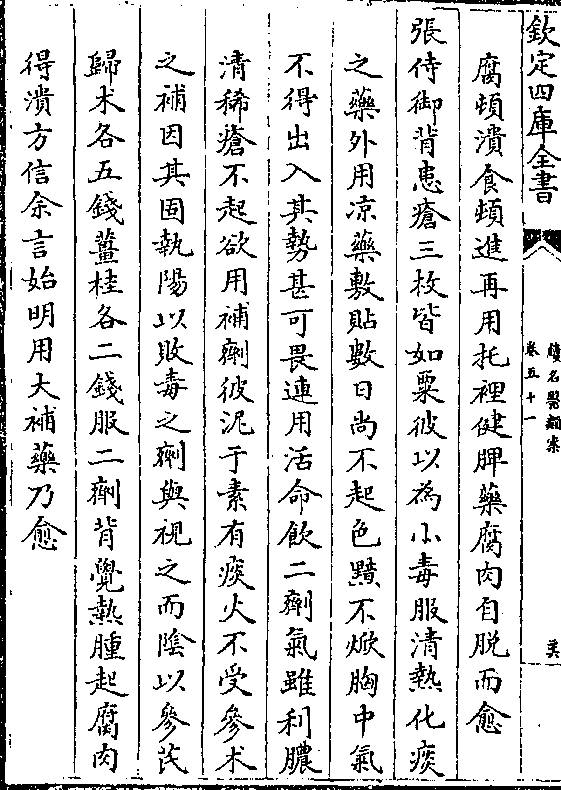 欽定四庫全書
續名醫類案
卷五十一
腐頓潰食頓進再用托裡健脾藥腐肉自脫而愈
張侍御背患瘡三枚皆如粟彼以為小毒服清熱化痰
之藥外用凉藥敷貼數日尚不起色黯不焮胸中氣
不得出入其勢甚可畏連用活命飲二劑氣雖利膿
清稀瘡不起欲用補劑彼泥于素有痰火不受參术
之補因其固執陽以敗毒之劑與視之而陰以參芪
歸术各五錢薑桂各二錢服二劑背覺熱腫起腐肉
得潰方信余言始明用大補藥乃愈